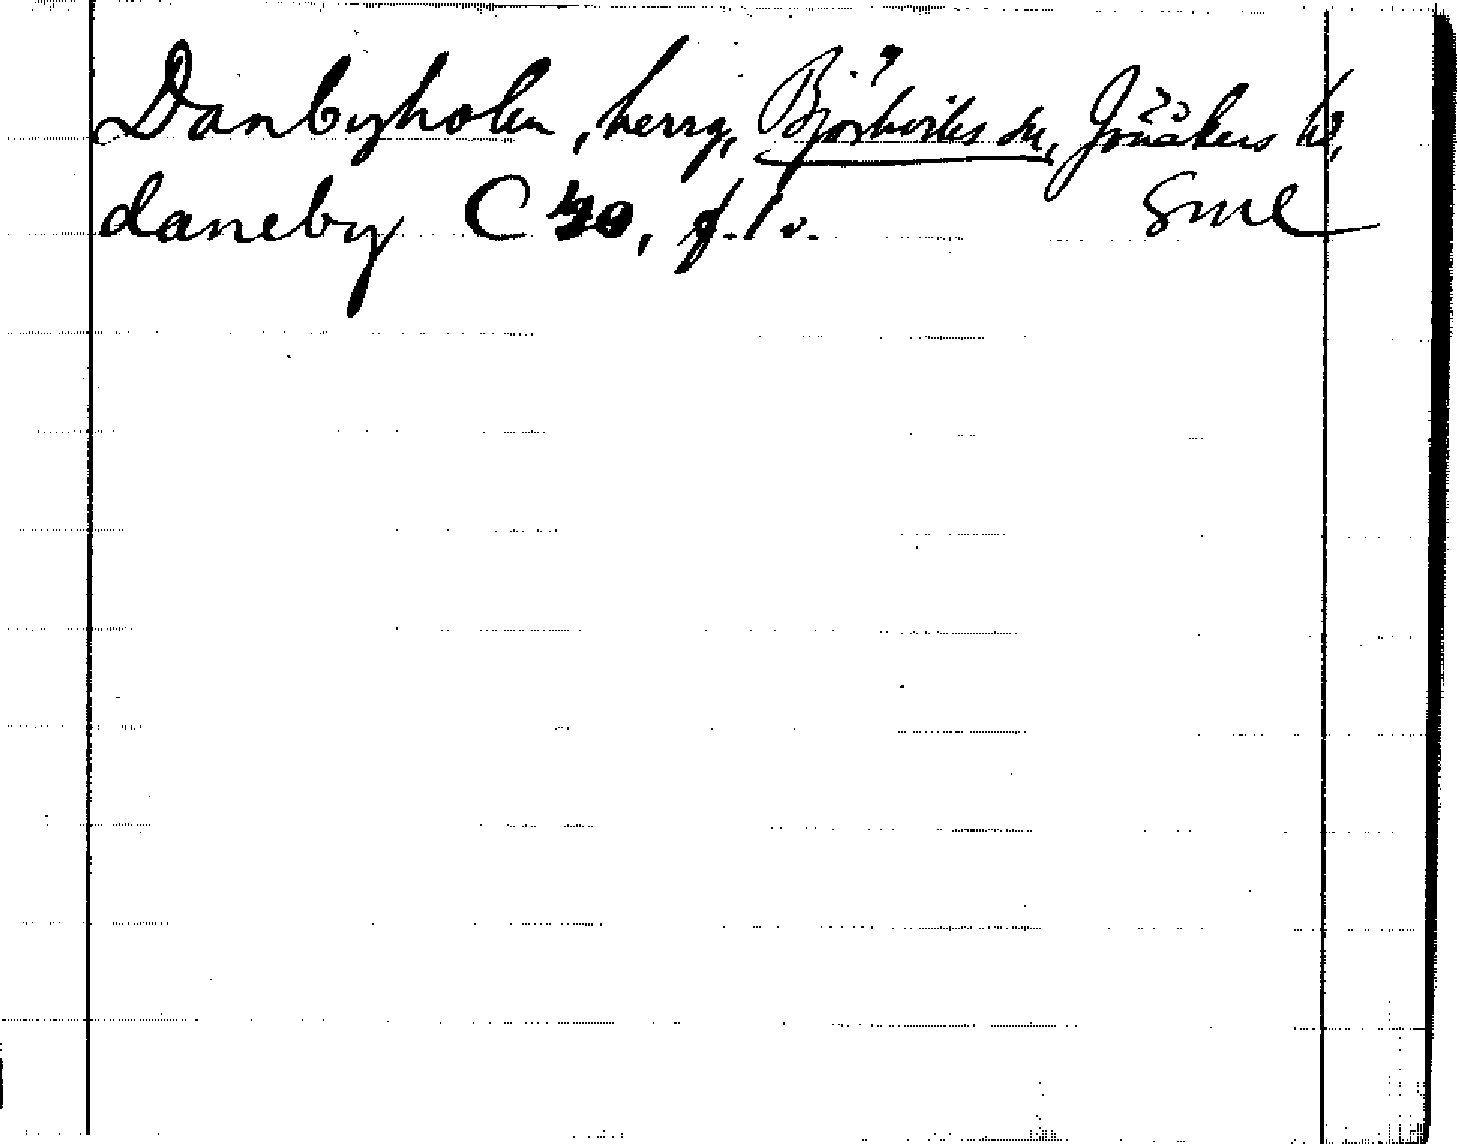 Danbyholm, herrg, Björkviks sn, Jönåkers hd,
daneby C 20, f. 1 v. Sml